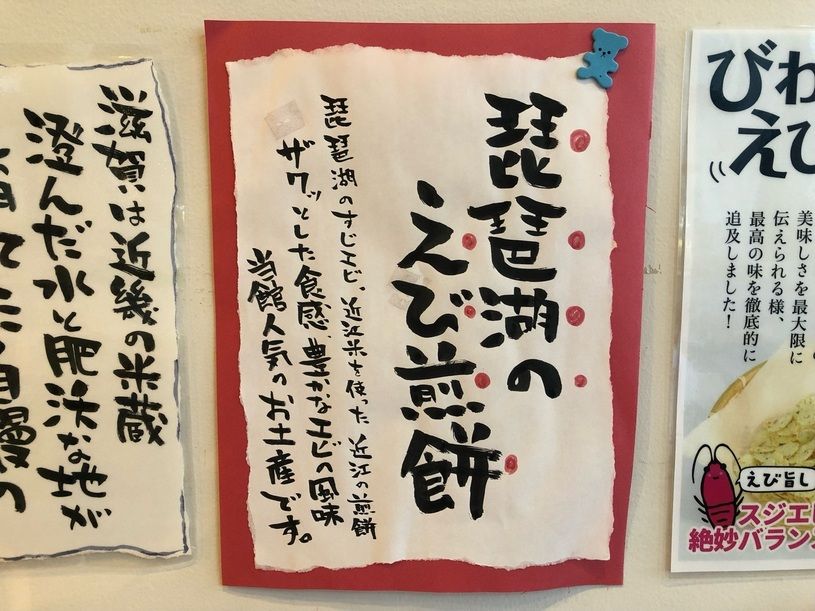 琵琶湖の
えび煎餅
琵琶湖のすじエビ、近江米を使った近江の煎餅
ザクッとした食感、豊かなエビの風味
当館人気のお土産です。
滋賀は近畿の米蔵
澄んだ水と肥沃な地が
びわ
えび
美味しさを最大限に
伝えられる様、
最高の味を徹底的に
追及しました!
えび旨し
スジエビ
絶妙バランス